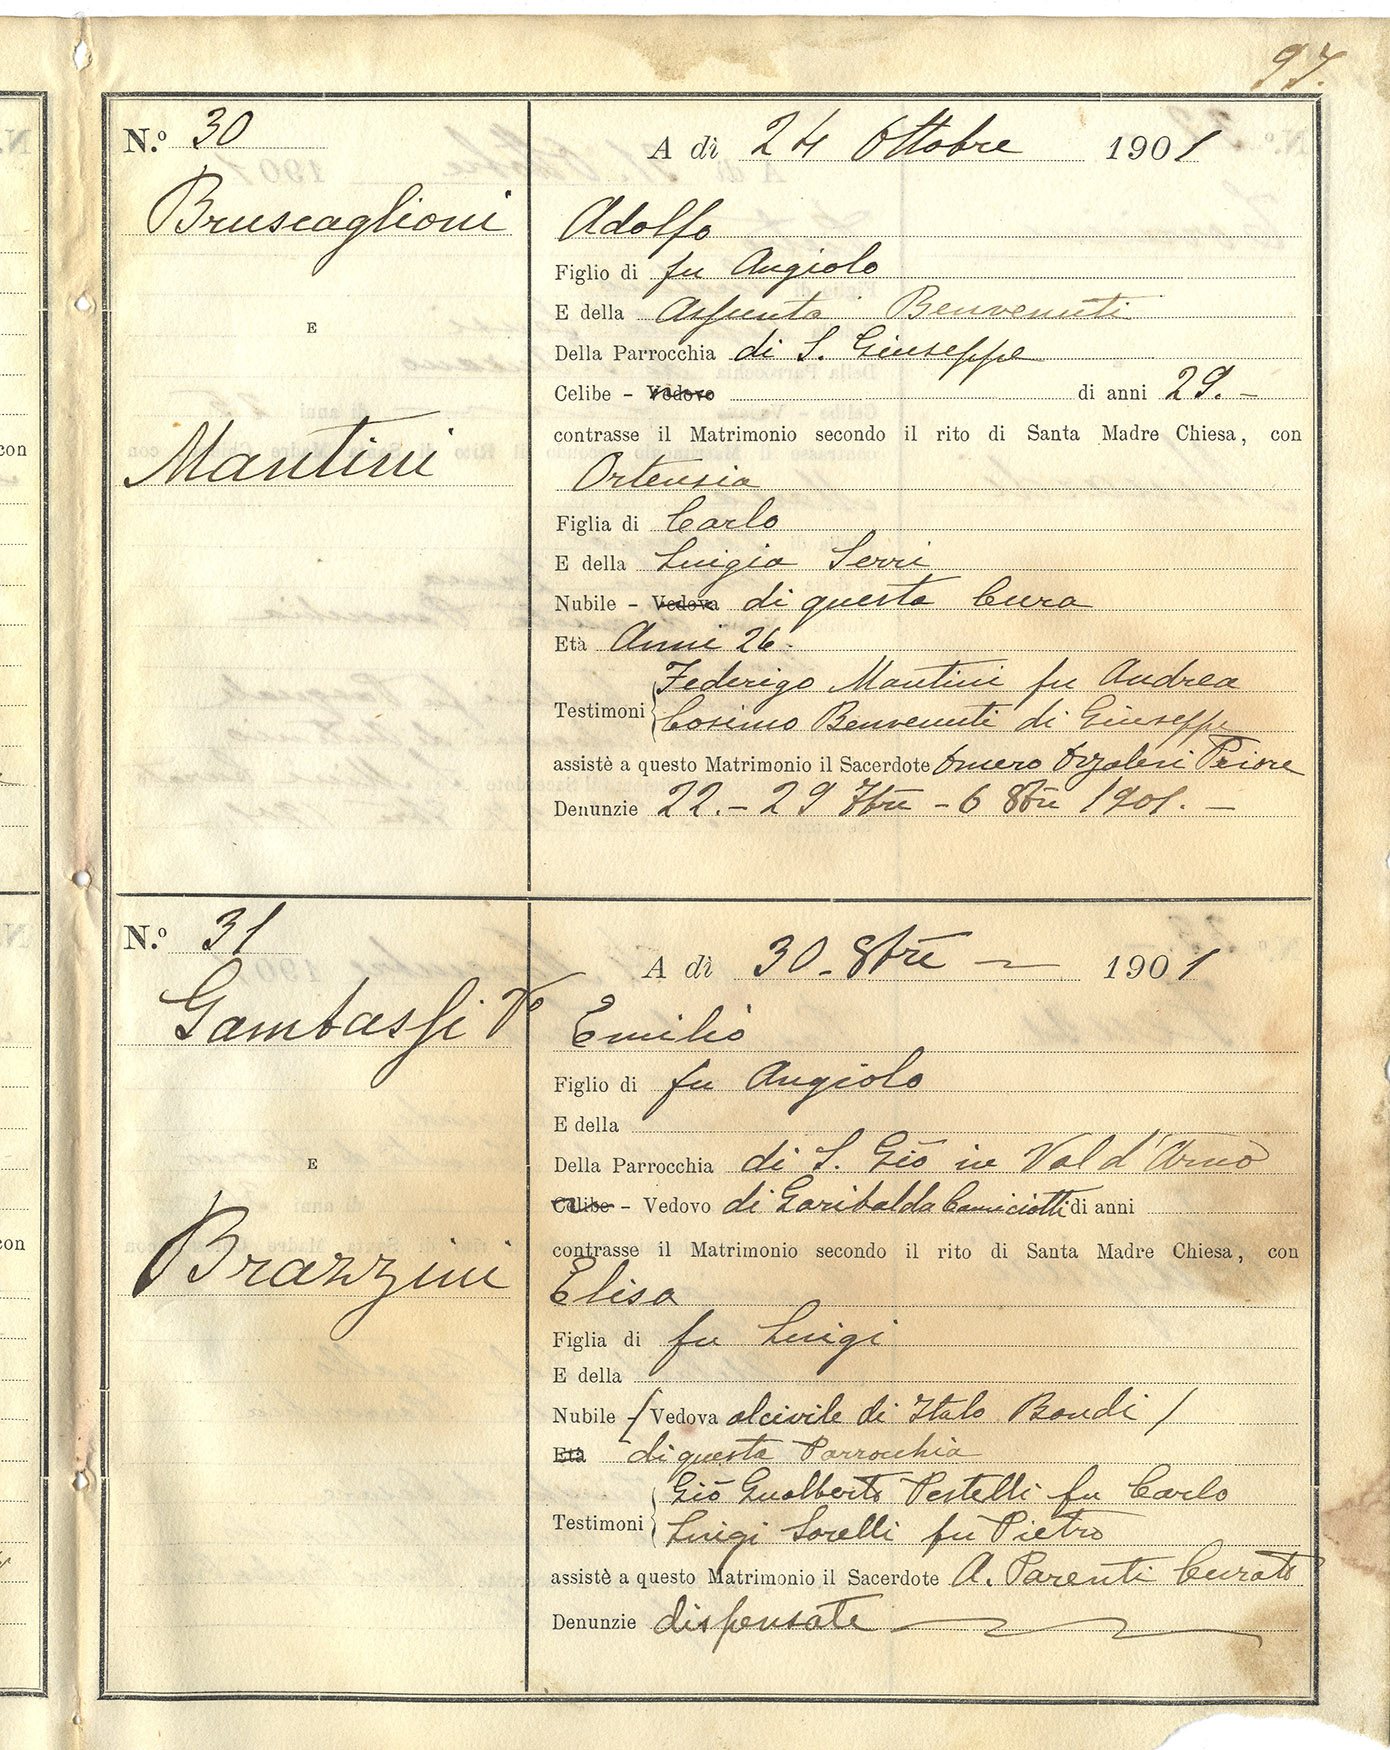 97.
N.º 30
A dì 24 Ottobre 1901
Bruscaglioni
Adolfo
Figlio di fu Angiolo
E della Assunta Benvenuti
E
Della Parrocchia di S. Giuseppe
Celibe - Vedovo di anni 29. -
contrasse il Matrimonio secondo il rito di Santa Madre Chiesa, con
Mantini
Ortensia
Figlia di Carlo
E della Luigia Serri
Nubile - Vedova di questa Cura
Età Anni 26.
Federigo Mantini fu Andrea
Testimoni
Cosimo Benvenuti di Giuseppe
assistè a questo Matrimonio il Sacerdote Omero Orzalesi Priore
Denunzie 22. - 29 7bre - 6 8bre 1901. -
N.º 31
A dì 30. 8bre - 1901
Gambassi Vo
Emilio
Figlio di fu Angiolo
E della
E
Della Parrocchia di S. Gio in Val d'Arno
Celibe - Vedovo di Garibalda Camiciotti di anni
contrasse il Matrimonio secondo il rito di Santa Madre Chiesa, con
Brazzini
Elisa
Figlia di fu Luigi
E della
Nubile - / Vedova al civile di Italo Bondi /
Età di questa Parrochia
Gio Gualberto Pestelli fu Carlo
Testimoni
Luigi Sorelli fu Pietro
assistè a questo Matrimonio il Sacerdote A. Parenti Curato
Denunzie dispensate
con
con